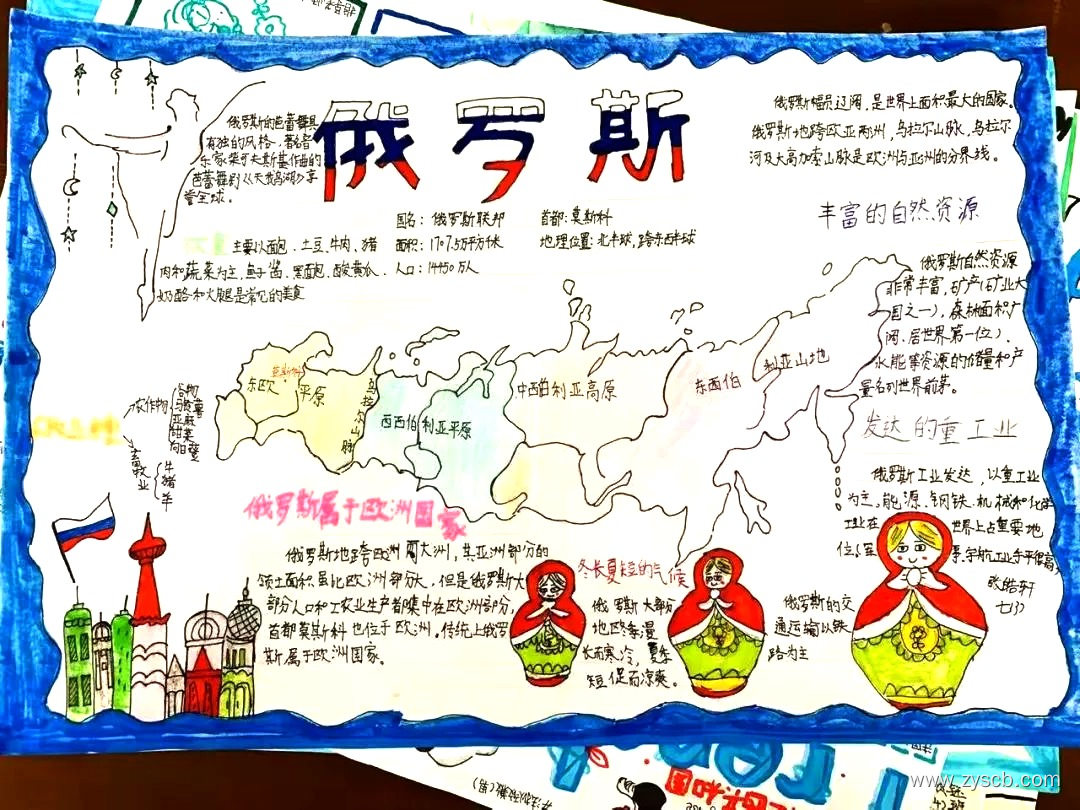 俄罗斯
俄罗斯的芭蕾舞具
有独的风格，著名音
乐家柴可夫斯基作曲的
芭蕾舞剧《天鹅湖》享
誉全球。
国名：俄罗斯联邦
面积：1707.5万平方千米
人口：14450万人
首都：莫斯科
地理位置：北半球，跨东西半球
主要以面包、土豆、牛肉、猪
肉和蔬菜为主，鱼子酱、黑面包、酸黄瓜、
奶酪和火腿是常见的美食
俄罗斯幅员辽阔，是世界上面积最大的国家。
俄罗斯地跨欧亚两洲，乌拉尔山脉，乌拉尔
河及大高加索山脉是欧洲与亚洲的分界线。
丰富的自然资源
俄罗斯自然资源
非常丰富，矿产(矿业大
国之一)，森林面积广
阔，居世界第一位)，
水能等资源的储量和产
量名列世界前茅。
莫斯科
东欧平原
乌拉尔山脉
西西伯利亚平原
中西伯利亚高原
东西伯利亚山地
农作物
谷物
马铃薯
亚麻
甜菜
向日葵
畜牧业
牛
猪
羊
俄罗斯属于欧洲国家
俄罗斯地跨欧洲两大洲，其亚洲部分的
领土面积虽比欧洲部分大，但是俄罗斯大
部分人口和工农业生产都集中在欧洲部分，
首都莫斯科也位于欧洲。传统上俄罗
斯属于欧洲国家。
冬长夏短的气候
俄罗斯大部分
地区冬季漫
长而寒冷，夏季
短促而凉爽。
俄罗斯的交
通运输以铁
路为主
发达的重工业
俄罗斯工业发达，以重工业
为主，能源、钢铁、机械和化学
工业在世界上占重要地
位
宇航工业水平很高
张皓轩
七(3)
www.zyscb.com